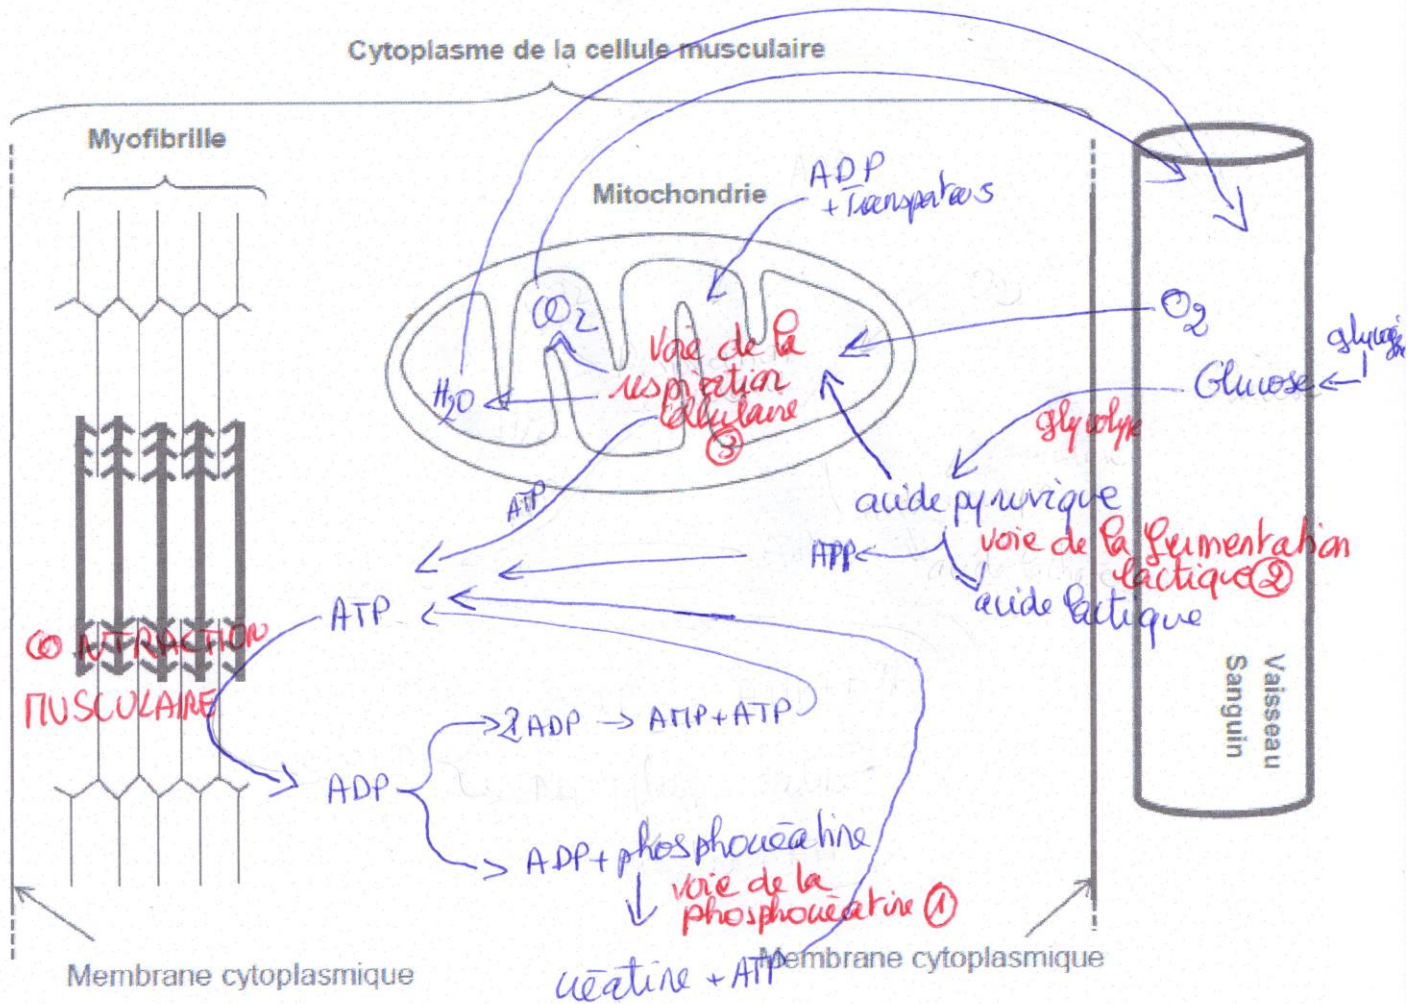 Cytoplasme de la cellule musculaire
Myofibrille
Mitochondrie
ADP
+ Transporteurs
CO2
H2O
voie de la
respiration
cellulaire
③
O2
Glucose
glycolyse
acide pyruvique
voie de la fermentation
lactique ②
acide lactique
ATP
ATP
CONTRACTION
MUSCULAIRE
2 ADP → AMP + ATP
ADP
ADP + phosphocréatine
voie de la
phosphocréatine ①
créatine + ATP
Vaisseau
Sanguin
Membrane cytoplasmique
Membrane cytoplasmique